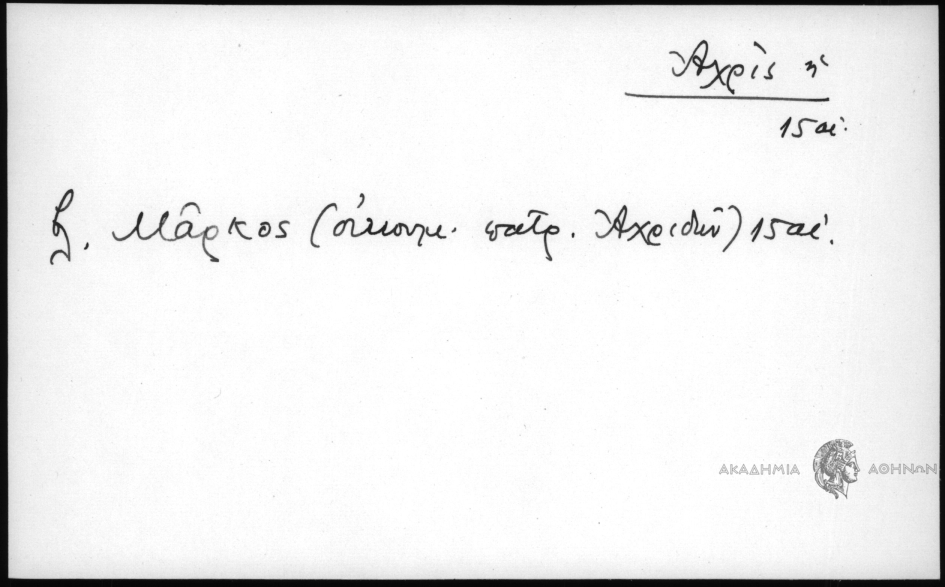 Ἀχρὶς ἡ
15 αἰ.
βλ. Μᾶρκος (οἰκουμ. πατρ. Ἀχριδῶν) 15 αἰ.
ΑΚΑΔΗΜΙΑ ΑΘΗΝΩΝ